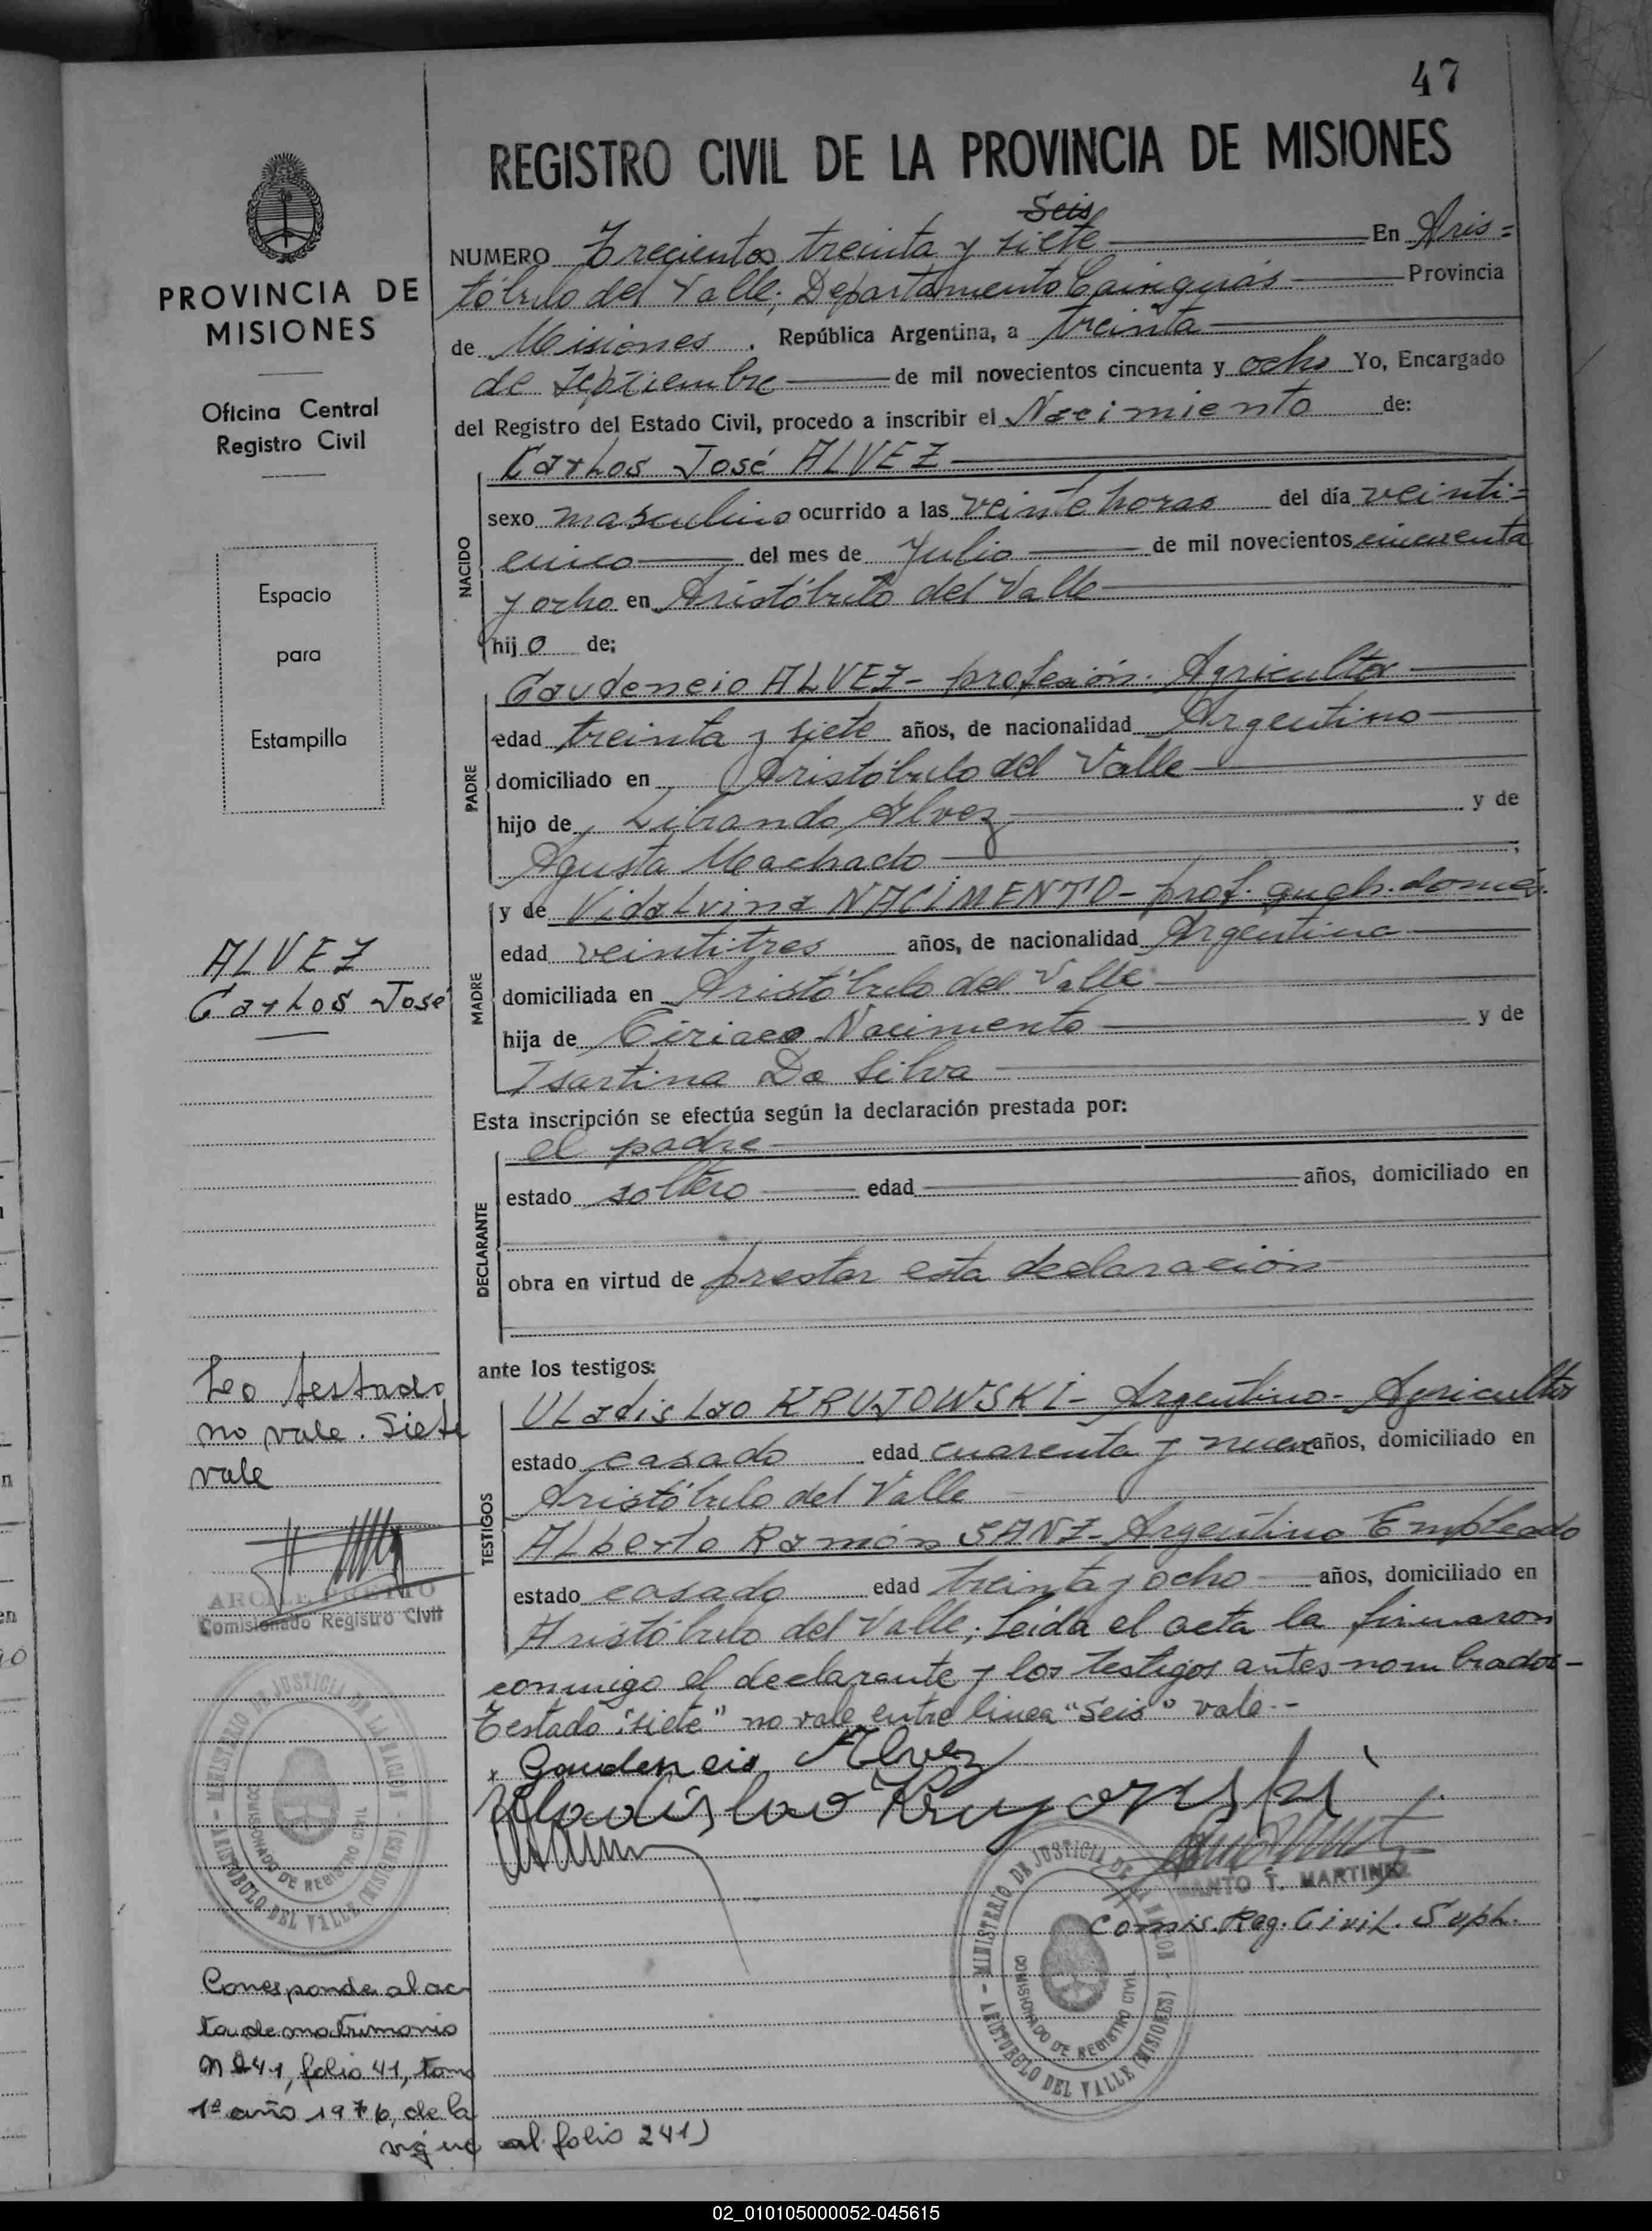 47
REGISTRO CIVIL DE LA PROVINCIA DE MISIONES
Seis
NUMERO Trecientos treinta y siete En Aris=
tóbulo del Valle; Departamento Cainguás Provincia
de Misiones. República Argentina, a treinta
de septiembre de mil novecientos cincuenta y ocho Yo, Encargado
del Registro del Estado Civil, procedo a inscribir el Nacimiento de:
NACIDO
Carlos José ALVEZ
sexo masculino ocurrido a las veinte horas del día veinti=
cinco del mes de Julio de mil novecientos cincuenta
y ocho en Aristóbulo del Valle
hijo de:
PADRE
Gaudencio ALVEZ- profesión. Agricultor
edad treinta y siete años, de nacionalidad Argentino
domiciliado en Aristóbulo del Valle
hijo de Librando Alvez y de
Agusta Machado ;
MADRE
y de Vidalvina NACIMENTO- prof. queh. domés.
edad veintitres años, de nacionalidad Argentina
domiciliada en Aristóbulo del Valle
hija de Ciriaco Nacimento y de
Isartina Da Silva
Esta inscripción se efectúa según la declaración prestada por:
DECLARANTE
el padre
estado soltero edad años, domiciliado en
obra en virtud de prestar esta declaración
ante los testigos:
TESTIGOS
ULadisLao KRUJOWSKI- Argentino- Agricultor
estado casado edad cuarenta y nueve años, domiciliado en
Aristóbulo del Valle
ALberto Ramón SANZ- Argentino Empleado
estado casado edad treinta y ocho años, domiciliado en
Aristóbulo del Valle; Leída el acta la firmaron
conmigo el declarante y los testigos antes nombrados-
Testado "siete" no vale entre linea "Seis" vale.-
x Gaudencio Alvez
SANTO T. MARTINEZ
Comis. Reg. Civil. Supl.
MINISTERIO DE JUSTICIA DE LA NACION
COMISIONADO DE REGISTRO CIVIL
ARISTOBULO DEL VALLE (MISIONES)
PROVINCIA DE
MISIONES
Oficina Central
Registro Civil
Espacio
para
Estampilla
ALVEZ
Carlos José
Lo testado
no vale. Siete
vale
Comisionado Registro Civil
MINISTERIO DE JUSTICIA DE LA NACION
COMISIONADO DE REGISTRO CIVIL
ARISTOBULO DEL VALLE (MISIONES)
Corresponde al ac
ta de matrimonio
Nº 41, folio 41, tomo
1º año 1976, de la
sigue al folio 241)
02_010105000052-045615